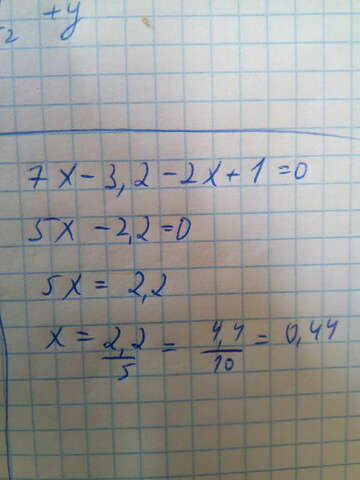 2 + y
7x - 3,2 - 2x + 1 = 0
5x - 2,2 = 0
5x = 2,2
x = 2,2/5 = 4,4/10 = 0,44